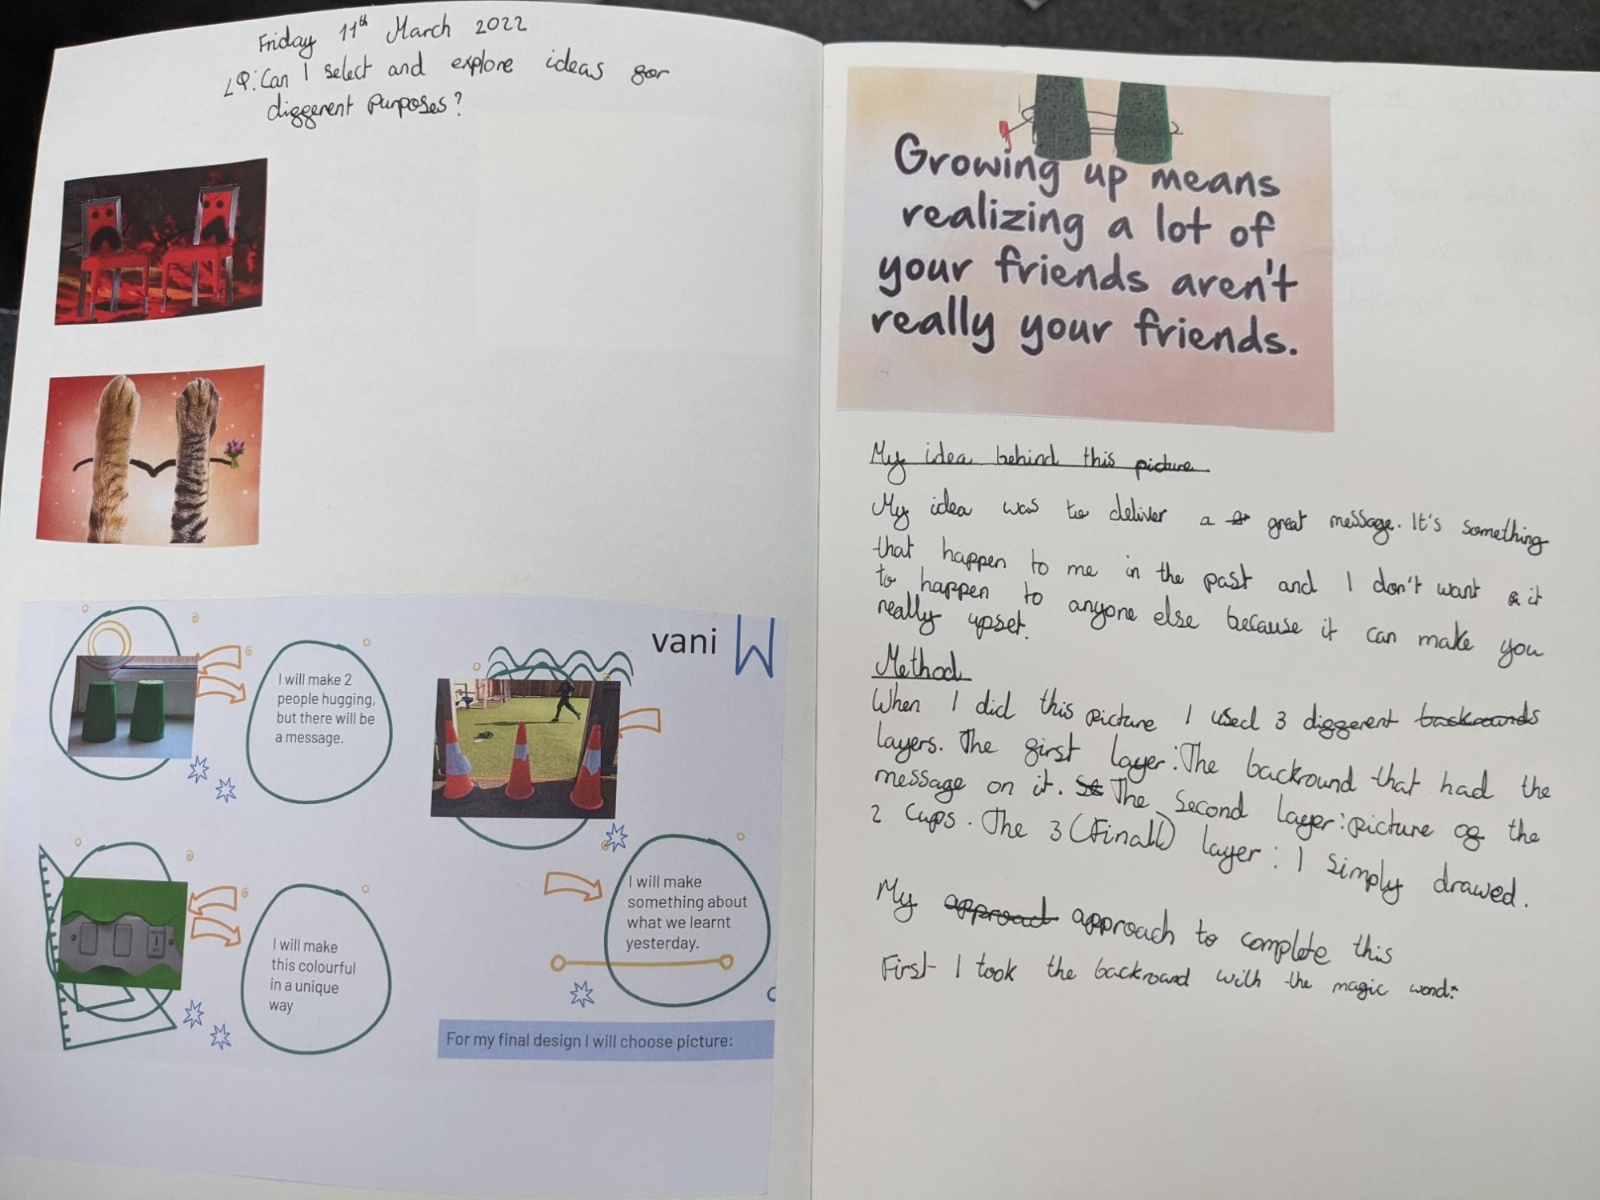 Friday 11th March 2022
LQ: Can I select and explore ideas for
different purposes?
vani
I will make 2
people hugging,
but there will be
a message.
I will make
this colourful
in a unique
way
I will make
something about
what we learnt
yesterday.
For my final design I will choose picture:
Growing up means
realizing a lot of
your friends aren't
really your friends.
My idea behind this picture
My idea was to deliver a great message. It's something
that happen to me in the past and I don't want it
to happen to anyone else because it can make you
really upset.
Method
When I did this picture I used 3 different backrounds
layers. The first layer: The backround that had the
message on it. The second layer: picture of the
2 cups. The 3 (Finall) layer: I simply drawed.
My approach to complete this
First I took the backround with the magic word.